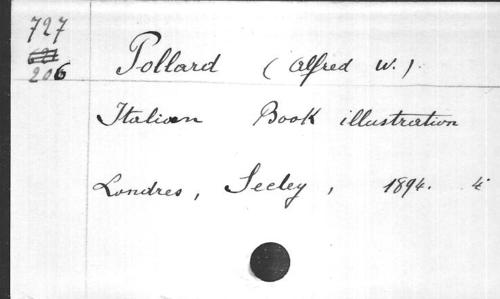 727
206
Pollard (Alfred W.)
Italian Book illustration
Londres, Seeley, 1894. 4°